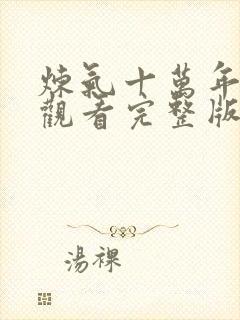 煉氣十萬年
觀看完整版
湯裸